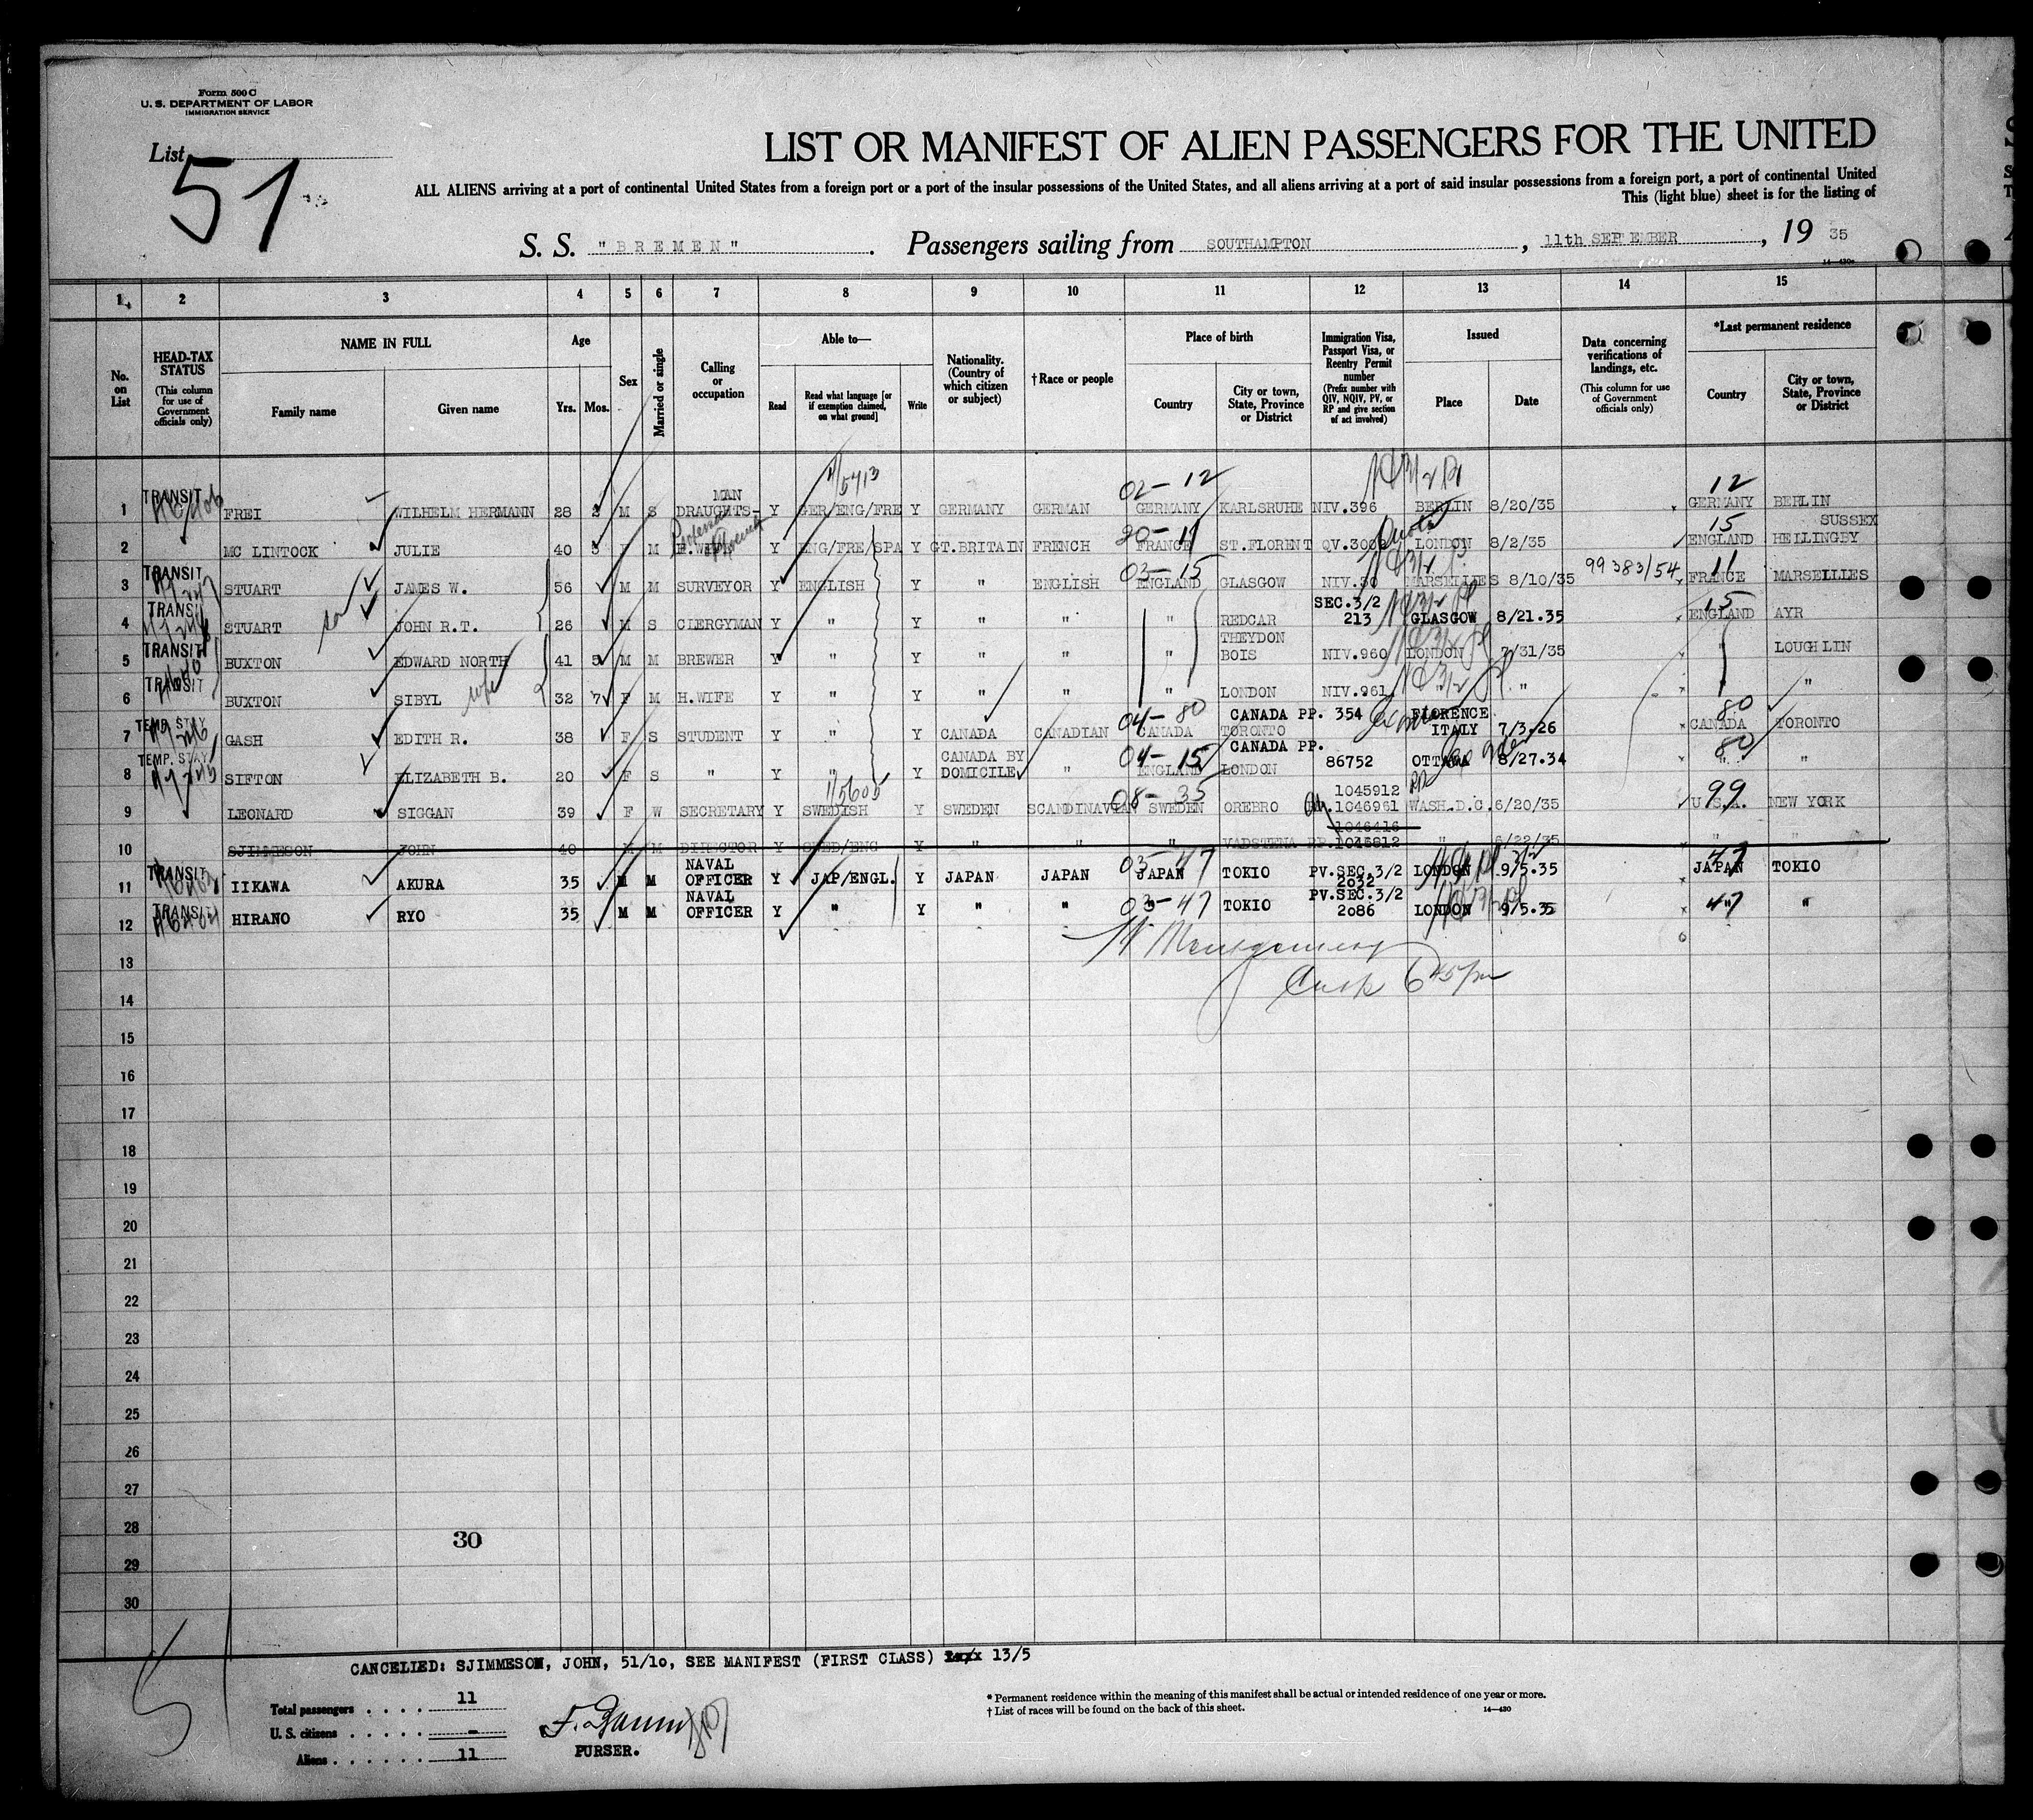 Form 500 C
U. S. DEPARTMENT OF LABOR
IMMIGRATION SERVICE
List 51
LIST OR MANIFEST OF ALIEN PASSENGERS FOR THE UNITED
ALL ALIENS arriving at a port of continental United States from a foreign port or a port of the insular possessions of the United States, and all aliens arriving at a port of said insular possessions from a foreign port, a port of continental United
This (light blue) sheet is for the listing of
S. S. "BREMEN". Passengers sailing from SOUTHAMPTON, 11th SEPTEMBER, 19 35
14—430a
1 2 3 4 5 6 7 8 9 10 11 12 13 14 15
No. on List
HEAD-TAX STATUS (This column for use of Government officials only)
NAME IN FULL
Family name Given name
Age
Yrs. Mos.
Sex
Married or single
Calling or occupation
Able to—
Read Read what language [or if exemption claimed, on what ground] Write
Nationality. (Country of which citizen or subject)
†Race or people
Place of birth
Country City or town, State, Province or District
Immigration Visa, Passport Visa, or Reentry Permit number (Prefix number with QIV, NQIV, PV, or RP and give section of act involved)
Issued
Place Date
Data concerning verifications of landings, etc. (This column for use of Government officials only)
*Last permanent residence
Country City or town, State, Province or District
4/5713 02-12 12
1 TRANSIT FREI WILHELM HERMANN 28 2 M S DRAUGHTS-MAN Y GER/ENG/FRE Y GERMANY GERMAN GERMANY KARLSRUHE NIV.396 BERLIN 8/20/35 GERMANY BERLIN
20-11 15 SUSSEX
2 MC LINTOCK JULIE 40 3 F M H.WIFE Y ENG/FRE/SPA Y GT.BRITAIN FRENCH FRANCE ST.FLORENT QV. LONDON 8/2/35 ENGLAND HELLINGBY
03-15 99383/54 11
3 TRANSIT STUART JAMES W. 56 M M SURVEYOR Y ENGLISH Y " ENGLISH ENGLAND GLASGOW NIV.30 MARSEILLES 8/10/35 FRANCE MARSEILLES
SEC.3/2 15
4 TRANSIT STUART son JOHN R.T. 26 M S CLERGYMAN Y " Y " " " REDCAR 213 GLASGOW 8/21.35 ENGLAND AYR
5 TRANSIT BUXTON EDWARD NORTH 41 5 M M BREWER Y " Y " " " THEYDON BOIS NIV.960 LONDON 7/31/35 " LOUGHLIN
6 TRANSIT BUXTON SIBYL wife 32 7 F M H.WIFE Y " Y " " " LONDON NIV.961 " " " "
04-80 80
7 TEMP. STAY GASH EDITH R. 38 F S STUDENT Y " Y CANADA CANADIAN CANADA TORONTO CANADA PP. 354 FLORENCE ITALY 7/3.26 CANADA TORONTO
04-15 80
8 TEMP. STAY SIFTON ELIZABETH B. 20 F S " Y " Y CANADA BY DOMICILE " ENGLAND LONDON CANADA PP. 86752 OTTAWA 8/27.34 " "
4/5605 08-35 1045912 99
9 LEONARD SIGGAN 39 F W SECRETARY Y SWEDISH Y SWEDEN SCANDINAVIAN SWEDEN OREBRO 1046961 WASH.D.C. 6/20/35 U.S.A. NEW YORK
1046416
10 SJIMMESON JOHN 40 M M DIRECTOR Y SWED/ENG Y " " " VADSTENA PP.1045812 " 6/22/35 " "
03-47 47
11 TRANSIT IIKAWA AKURA 35 M M NAVAL OFFICER Y JAP/ENGL. Y JAPAN JAPAN JAPAN TOKIO PV.SEC.3/2 2032 LONDON 9/5.35 JAPAN TOKIO
03-47 47
12 TRANSIT HIRANO RYO 35 M M NAVAL OFFICER Y " Y " " " TOKIO PV.SEC.3/2 2086 LONDON 9/5.35 " "
Montgomery
6 45 pm
13
14
15
16
17
18
19
20
21
22
23
24
25
26
27
28
30
29
30
51
CANCELLED: SJIMMESON, JOHN, 51/10, SEE MANIFEST (FIRST CLASS) 13/5
Total passengers . . . . 11
U. S. citizens . . . . . –
Aliens . . . . . . 11
PURSER.
* Permanent residence within the meaning of this manifest shall be actual or intended residence of one year or more.
† List of races will be found on the back of this sheet.
14—430